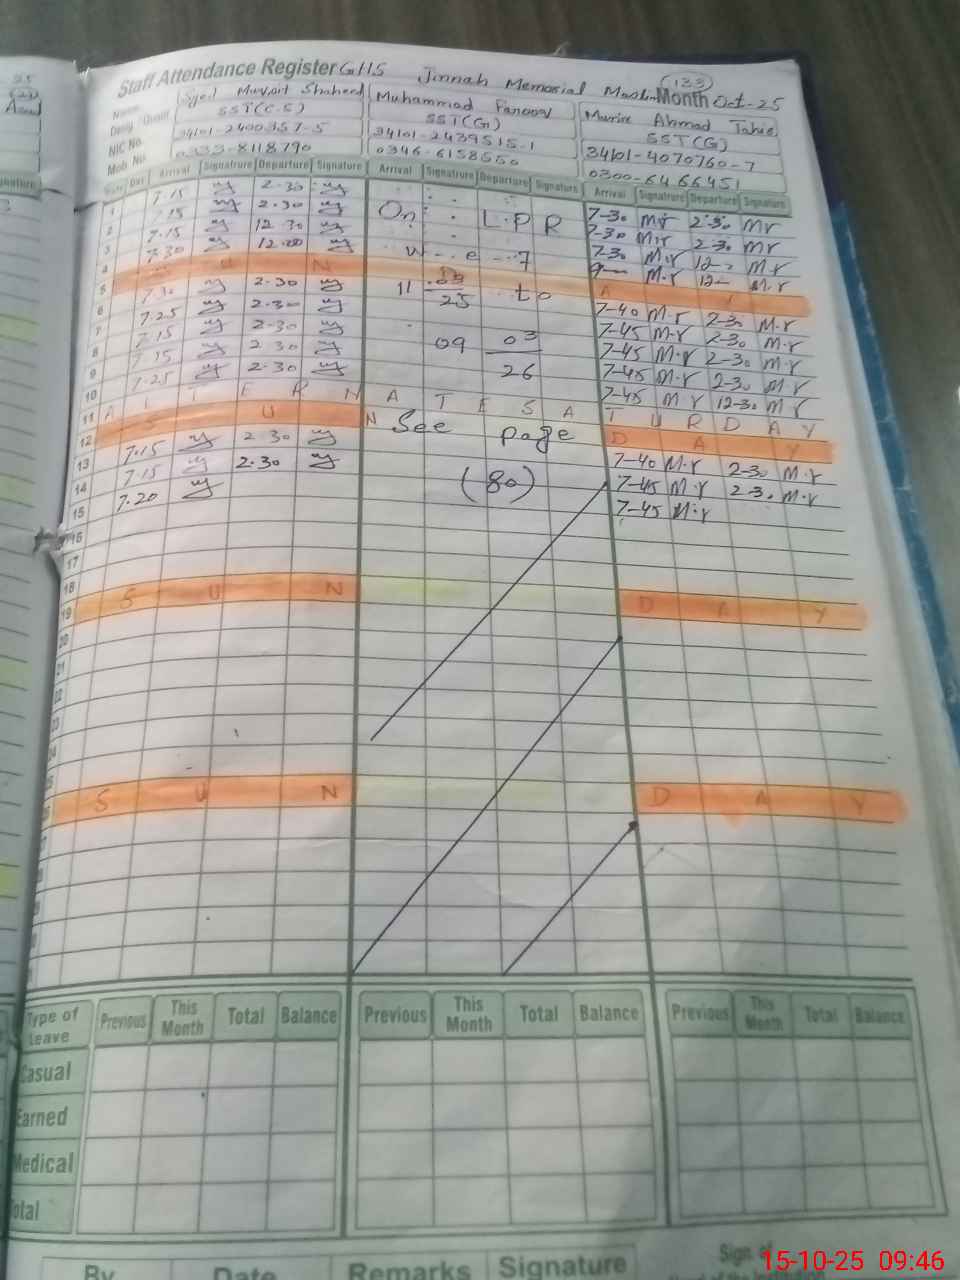 Staff Attendance Register GHS Jinnah Memorial Muslim Month Oct-25
(133)
Name Syed Shaheed Muhammad Farooq Ahmad Tahir
Desig SST(C.S) SST(G) SST(G)
NIC No. 34101-2400357-5 34101-2439515-1 34101-4070760-7
Mob. No. 0333-8118790 0346-6158550 0300-6466451
Date Day Arrival Signature Departure Signature Arrival Signature Departure Signature Arrival Signature Departure Signature
1 7.15 2.30 7-30 Mr 2-30 Mr
2 7.15 2.30 On L.P.R 7-30 M.r 2-30 Mr
3 7.15 12.30 7-30 M.r 12- M.r
4 7.30 12.00 w.e.f M.r 12- M.r
5 S U N D A Y
6 7.30 2.30 11 25 to 7-40 M.r 2-30 M.r
7 7.25 2.30 7-45 M.r 2-30 M.r
8 7.15 2.30 09 03 26 7-45 M.r 2-30 M.r
9 7.15 2.30 7-45 M.r 2-30 M.r
10 7.25 2.30 7-45 M r 12-30 M r
11 A L T E R N A T E S A T U R D A Y
12 S U N See page D A Y
13 7.15 2.30 7-40 M.r 2-30 M.r
14 7.15 2.30 (80) 7-45 M.r 2-30 M.r
15 7.20 7-45 M.r
16
17
18
19 S U N D A Y
20
21
22
23
24
S U N D A Y
Type of Leave Previous This Month Total Balance Previous This Month Total Balance Previous This Month Total Balance
Casual
Earned
Medical
Total
By Date Remarks Signature Sign of
15-10-25 09:46